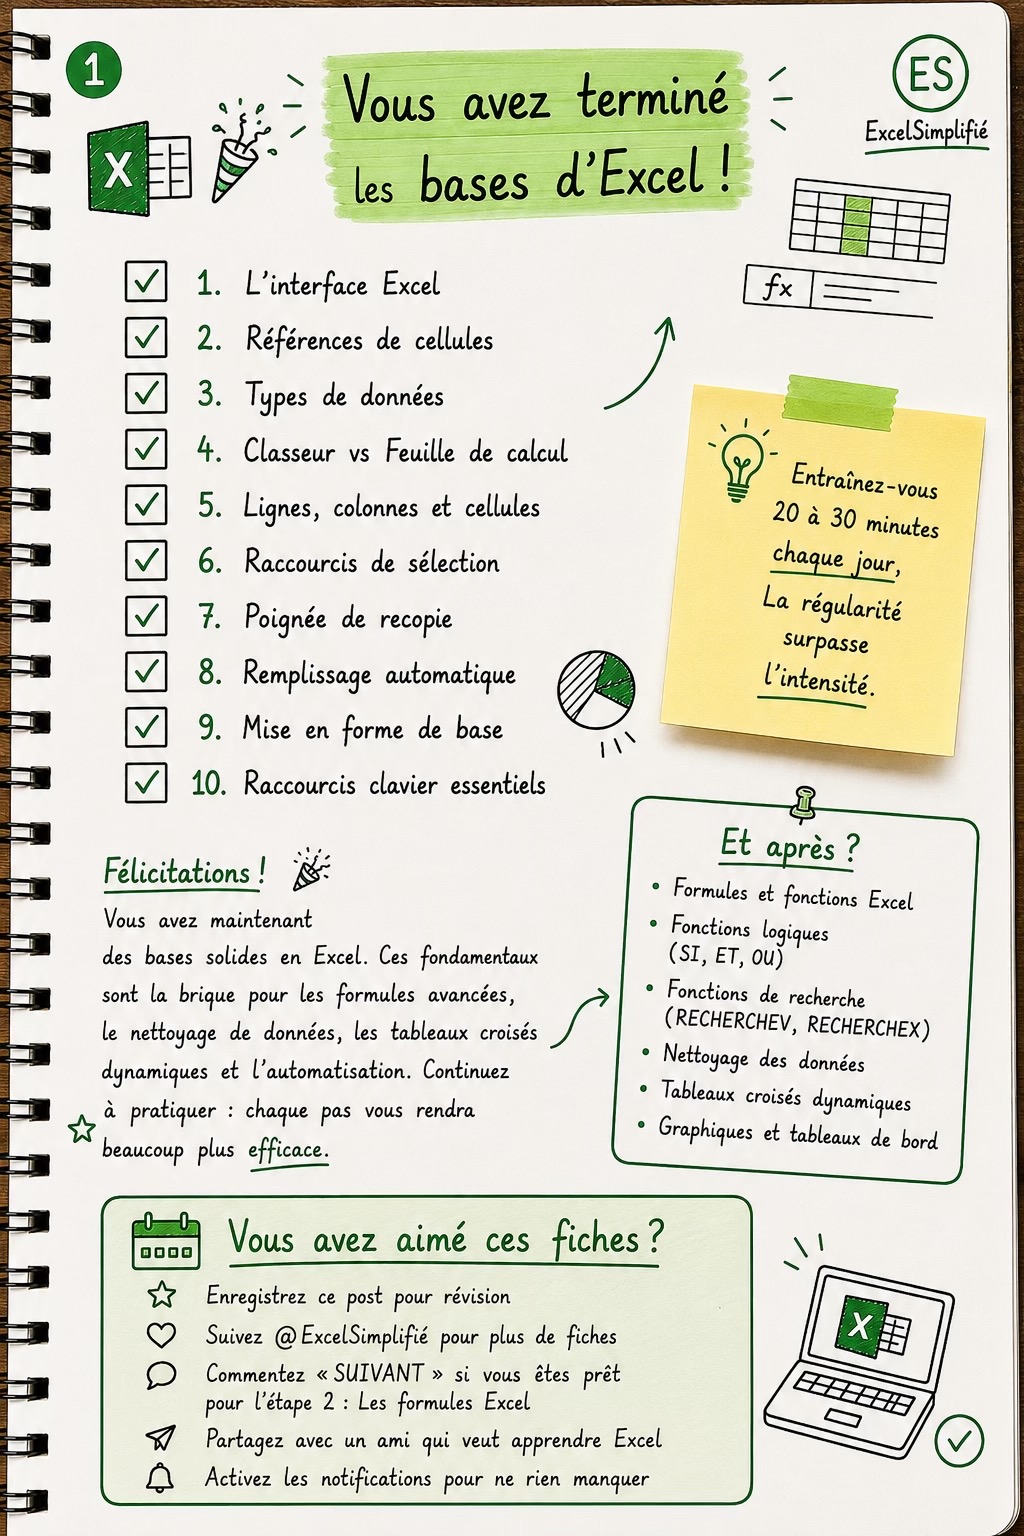 1
Vous avez terminé
les bases d'Excel !
ES
ExcelSimplifié
X
fx
1. L'interface Excel
2. Références de cellules
3. Types de données
4. Classeur vs Feuille de calcul
5. Lignes, colonnes et cellules
6. Raccourcis de sélection
7. Poignée de recopie
8. Remplissage automatique
9. Mise en forme de base
10. Raccourcis clavier essentiels
Entraînez-vous
20 à 30 minutes
chaque jour,
La régularité
surpasse
l'intensité.
Félicitations !
Vous avez maintenant
des bases solides en Excel. Ces fondamentaux
sont la brique pour les formules avancées,
le nettoyage de données, les tableaux croisés
dynamiques et l'automatisation. Continuez
à pratiquer : chaque pas vous rendra
beaucoup plus efficace.
Et après ?
• Formules et fonctions Excel
• Fonctions logiques
(SI, ET, OU)
• Fonctions de recherche
(RECHERCHEV, RECHERCHEX)
• Nettoyage des données
• Tableaux croisés dynamiques
• Graphiques et tableaux de bord
Vous avez aimé ces fiches ?
Enregistrez ce post pour révision
Suivez @ExcelSimplifié pour plus de fiches
Commentez « SUIVANT » si vous êtes prêt
pour l'étape 2 : Les formules Excel
Partagez avec un ami qui veut apprendre Excel
Activez les notifications pour ne rien manquer
X